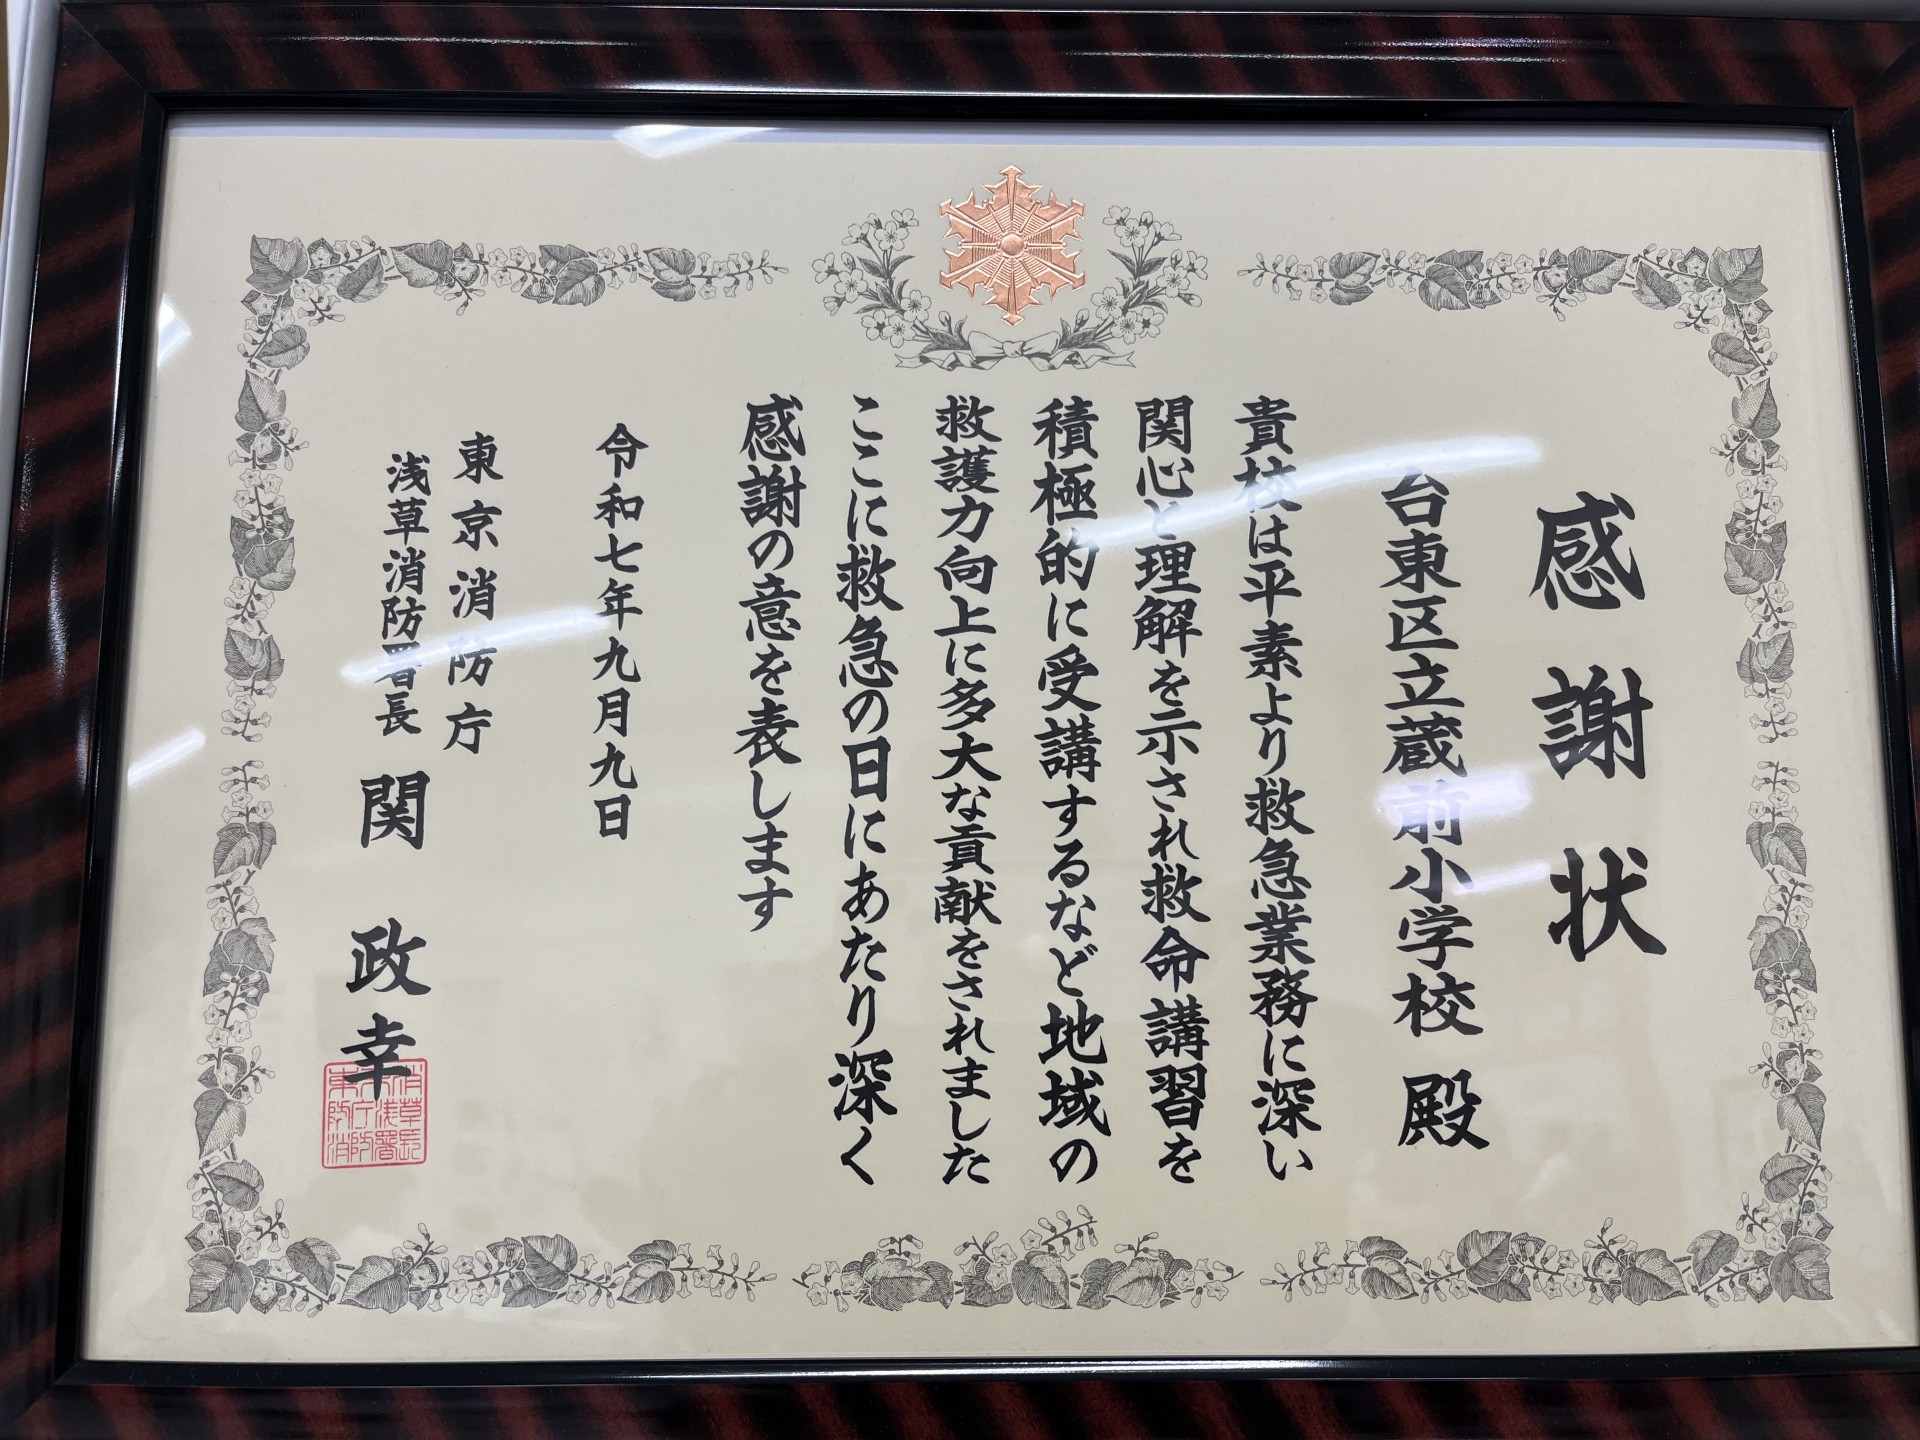 感謝状
台東区立蔵前小学校 殿
貴校は平素より救急業務に深い
関心と理解を示され救命講習を
積極的に受講するなど地域の
救護力向上に多大な貢献をされました
ここに救急の日にあたり深く
感謝の意を表します
令和七年九月九日
東京消防庁
浅草消防署長 関 政幸